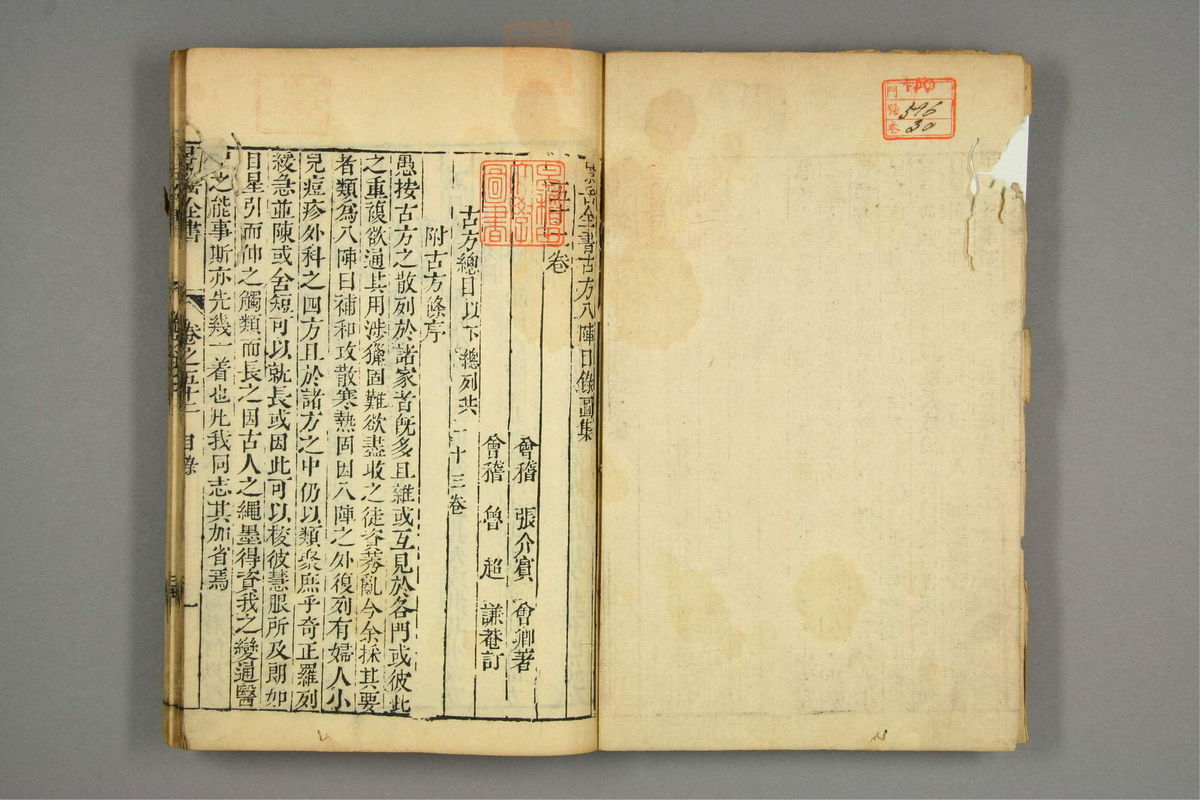 門
號 596
卷 30
景岳全書古方八陣目錄圖集
五十二卷
會稽 張介賓 會卿著
會稽 魯 超 謙菴訂
古方總目以下總列共一十三卷
附古方條序
愚按古方之散列於諸家者既多且雜或互見於各門或彼此
之重複欲通其用涉獵固難欲盡收之徒資莠亂今余採其要
者類為八陣曰補和攻散寒熱固因八陣之外復列有婦人小
兒痘疹外科之四方且於諸方之中仍以類聚庶乎奇正羅列
緩急並陳或舍短可以就長或因此可以校彼慧眼所及朗如
日星引而伸之觸類而長之因古人之繩墨得資我之變通醫
中之能事斯亦先幾一着也凡我同志其加省焉
景岳全書 卷之五十二 目錄 一
圖書